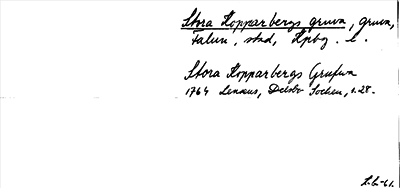 Stora Kopparbergs gruva, gruva,
Falun, stad, Kpbg. l.
Stora Kopparbergs Grufwa
1764 Lenæus, Delsbo Sochen, s. 28.